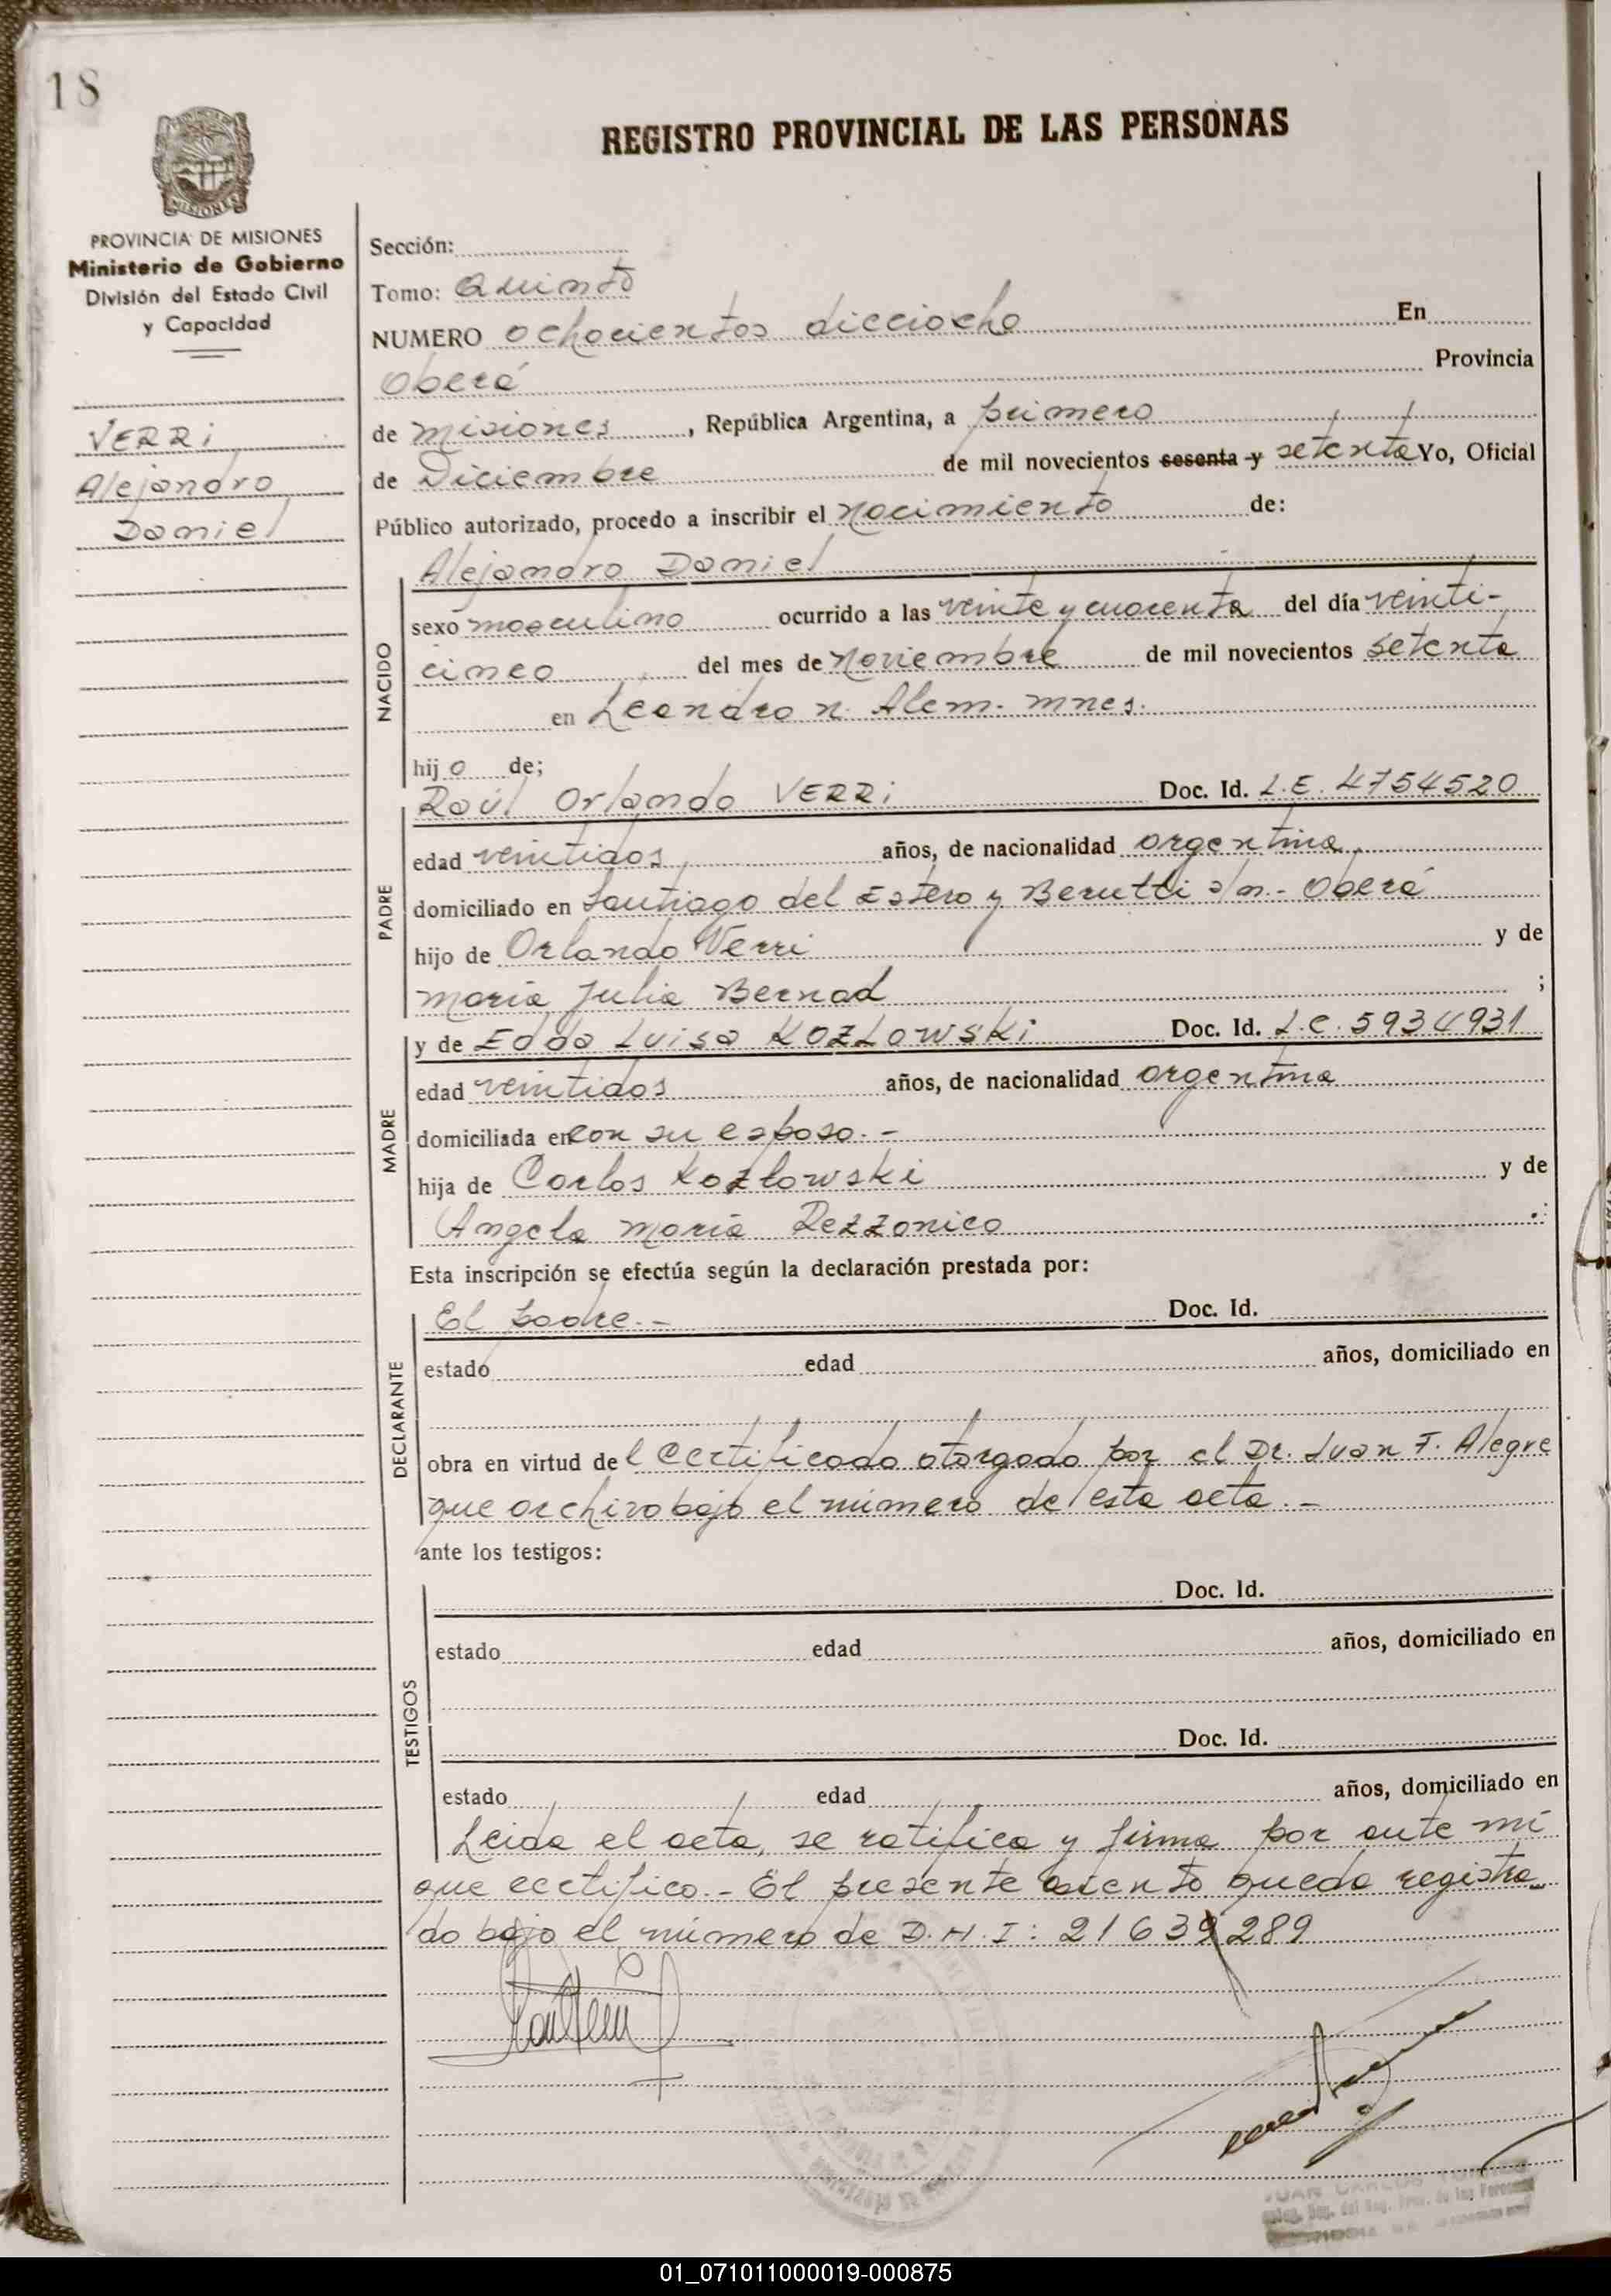 18
REGISTRO PROVINCIAL DE LAS PERSONAS
MISIONES
PROVINCIA DE MISIONES
Ministerio de Gobierno
División del Estado Civil
y Capacidad
VERRi
Alejandro
Daniel
Sección:
Tomo: Quinto
NUMERO ochocientos dieciocho En
Oberá Provincia
de misiones, República Argentina, a primero
de Diciembre de mil novecientos sesenta y setenta Yo, Oficial
Público autorizado, procedo a inscribir el nacimiento de:
Alejandro Daniel
NACIDO
sexo masculino ocurrido a las veinte y cuarenta del día veinti-
cinco del mes de Noviembre de mil novecientos setenta
en Leandro n. Alem. mnes.
hijo de;
Raúl Orlando VERRi Doc. Id. L.E. 4754520
PADRE
edad veintidos años, de nacionalidad argentina
domiciliado en Santiago del Estero y Berutti s/n.- Oberá
hijo de Orlando Verri y de
maria Julia Bernad ;
y de Edda Luisa KOZLOWSKi Doc. Id. L.C. 5934931
MADRE
edad veintidos años, de nacionalidad argentina
domiciliada en con su esposo.-
hija de Carlos Kozlowski y de
Angela maria Rezzonico
Esta inscripción se efectúa según la declaración prestada por:
El padre.- Doc. Id.
DECLARANTE
estado edad años, domiciliado en
obra en virtud del Certificado otorgado por el Dr. Juan F. Alegre
que archivo bajo el número de esta acta.-
ante los testigos:
Doc. Id.
TESTIGOS
estado edad años, domiciliado en
Doc. Id.
estado edad años, domiciliado en
Leida el acta, se ratifica y firma por ante mí
que certifico.- El presente asiento queda registra
do bajo el número de D.N.I: 21639289
JUAN CARLOS
01_071011000019-000875